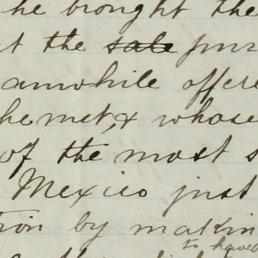 he brought the
t the sale pur
anwhile offere
he met, & whose
of the most s
Mexico just
tion by makin
to have